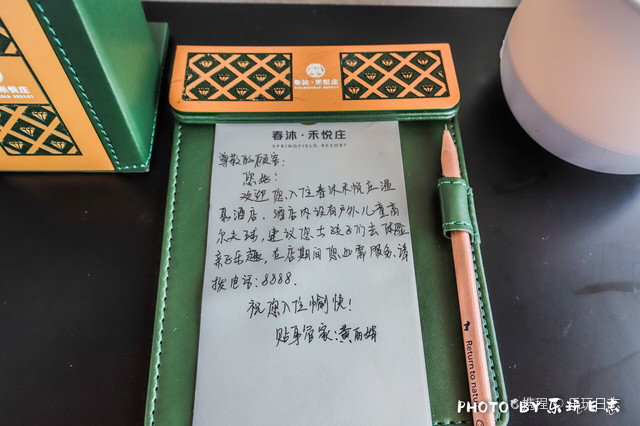 春沐·禾悦庄
SPRINGFIELD RESORT
春沐·禾悦庄
SPRINGFIELD RESORT
尊敬的顾客：
您好：
欢迎您入住春沐禾悦庄温
泉酒店，酒店内设有户外儿童高
尔夫球，建议您与孩子们去体验
亲子乐趣，在店期间您如需服务，请
拨电话：8888.
祝您入住愉快！
贴身管家：黄丽娟
Return to natu
PHOTO BY 乐玩日志
携程
乐玩日志